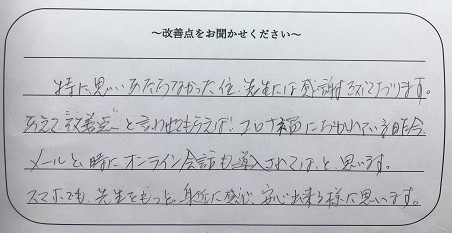 ～改善点をお聞かせください～
特に思いあたらなかった位、先生には感謝しております。
あえて“改善点”と言わせてもらえば、コロナ禍におかれている昨今、
メールと、時にオンライン会話も導入されては、と思います。
スマホでも、先生をもっと、身近に感じ、安心出来る様に思います。